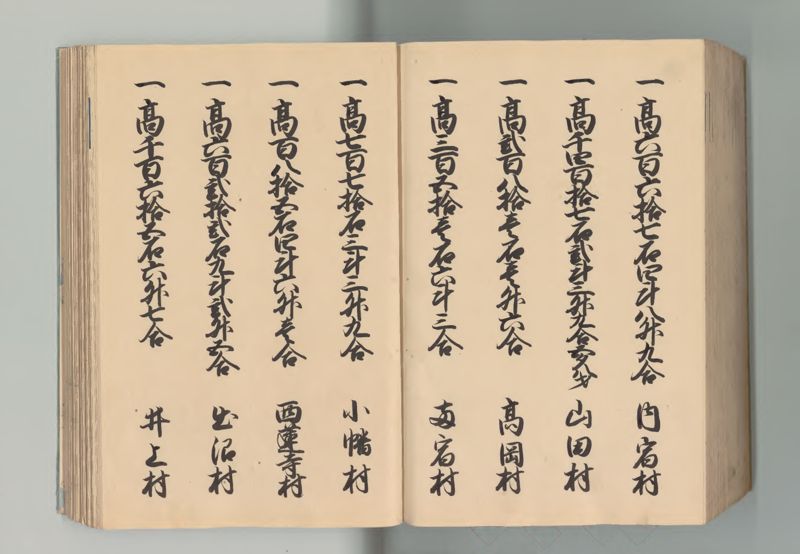 一高六百六拾七石四斗八升九合 内宿村
一高千四百拾七石弐斗三升九合 山田村
一高弐百八拾壱石壱升六合 高岡村
一高三百五拾壱石六斗三合 両宿村
一高七百七拾石三斗三升九合 小幡村
一高百八拾五石四斗六升壱合 西蓮寺村
一高六百弐拾弐石九斗弐升五合 出沼村
一高千百六拾五石六升七合 井上村